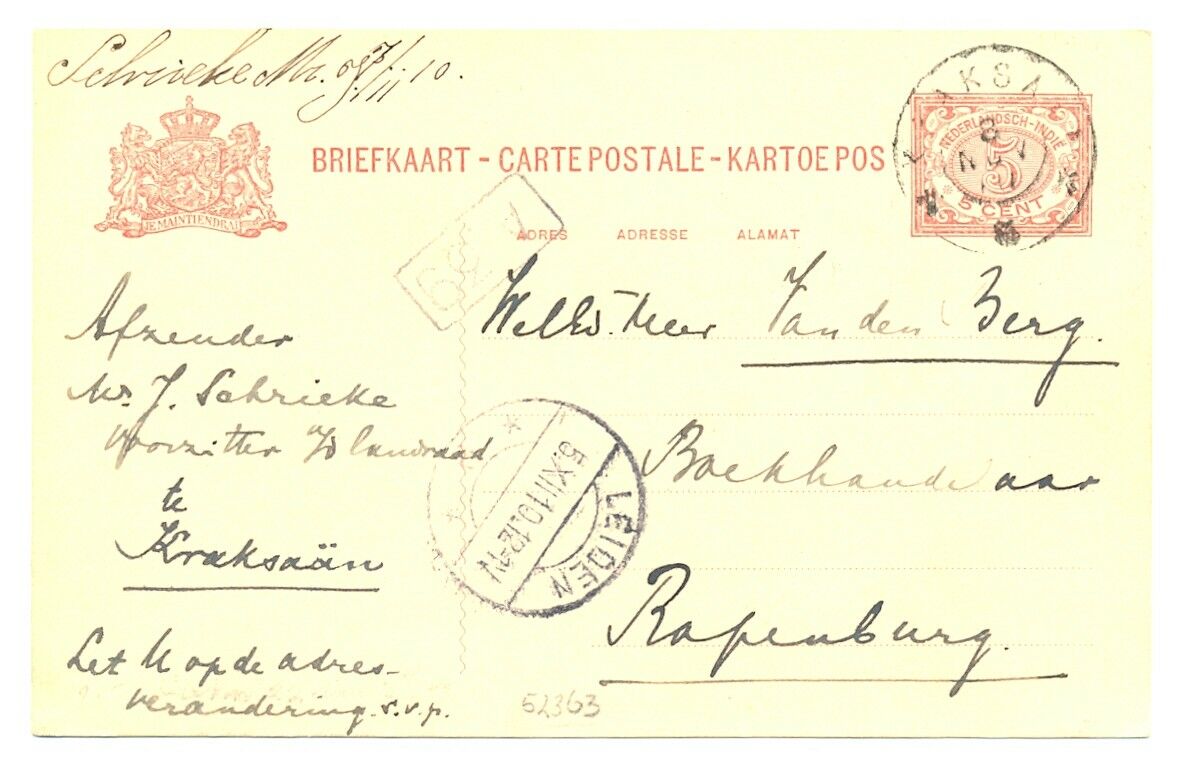 Schrieke Mr. 7/11 10.
BRIEFKAART - CARTE POSTALE - KARTOE POS
NEDERLANDSCH-INDIË
5
5 CENT
KRAKSAÄN
8
JE MAINTIENDRAI
ADRES ADRESSE ALAMAT
62
Afzender
Mr. J. Schrieke
voorzitter v/d landraad
te
Kraksaän
Let U op de adres-
verandering s.v.p.
WelEd. Heer Van den Berg.
Boekhandelaar
Rapenburg.
5.XII.10.12-1N
LEIDEN
52363